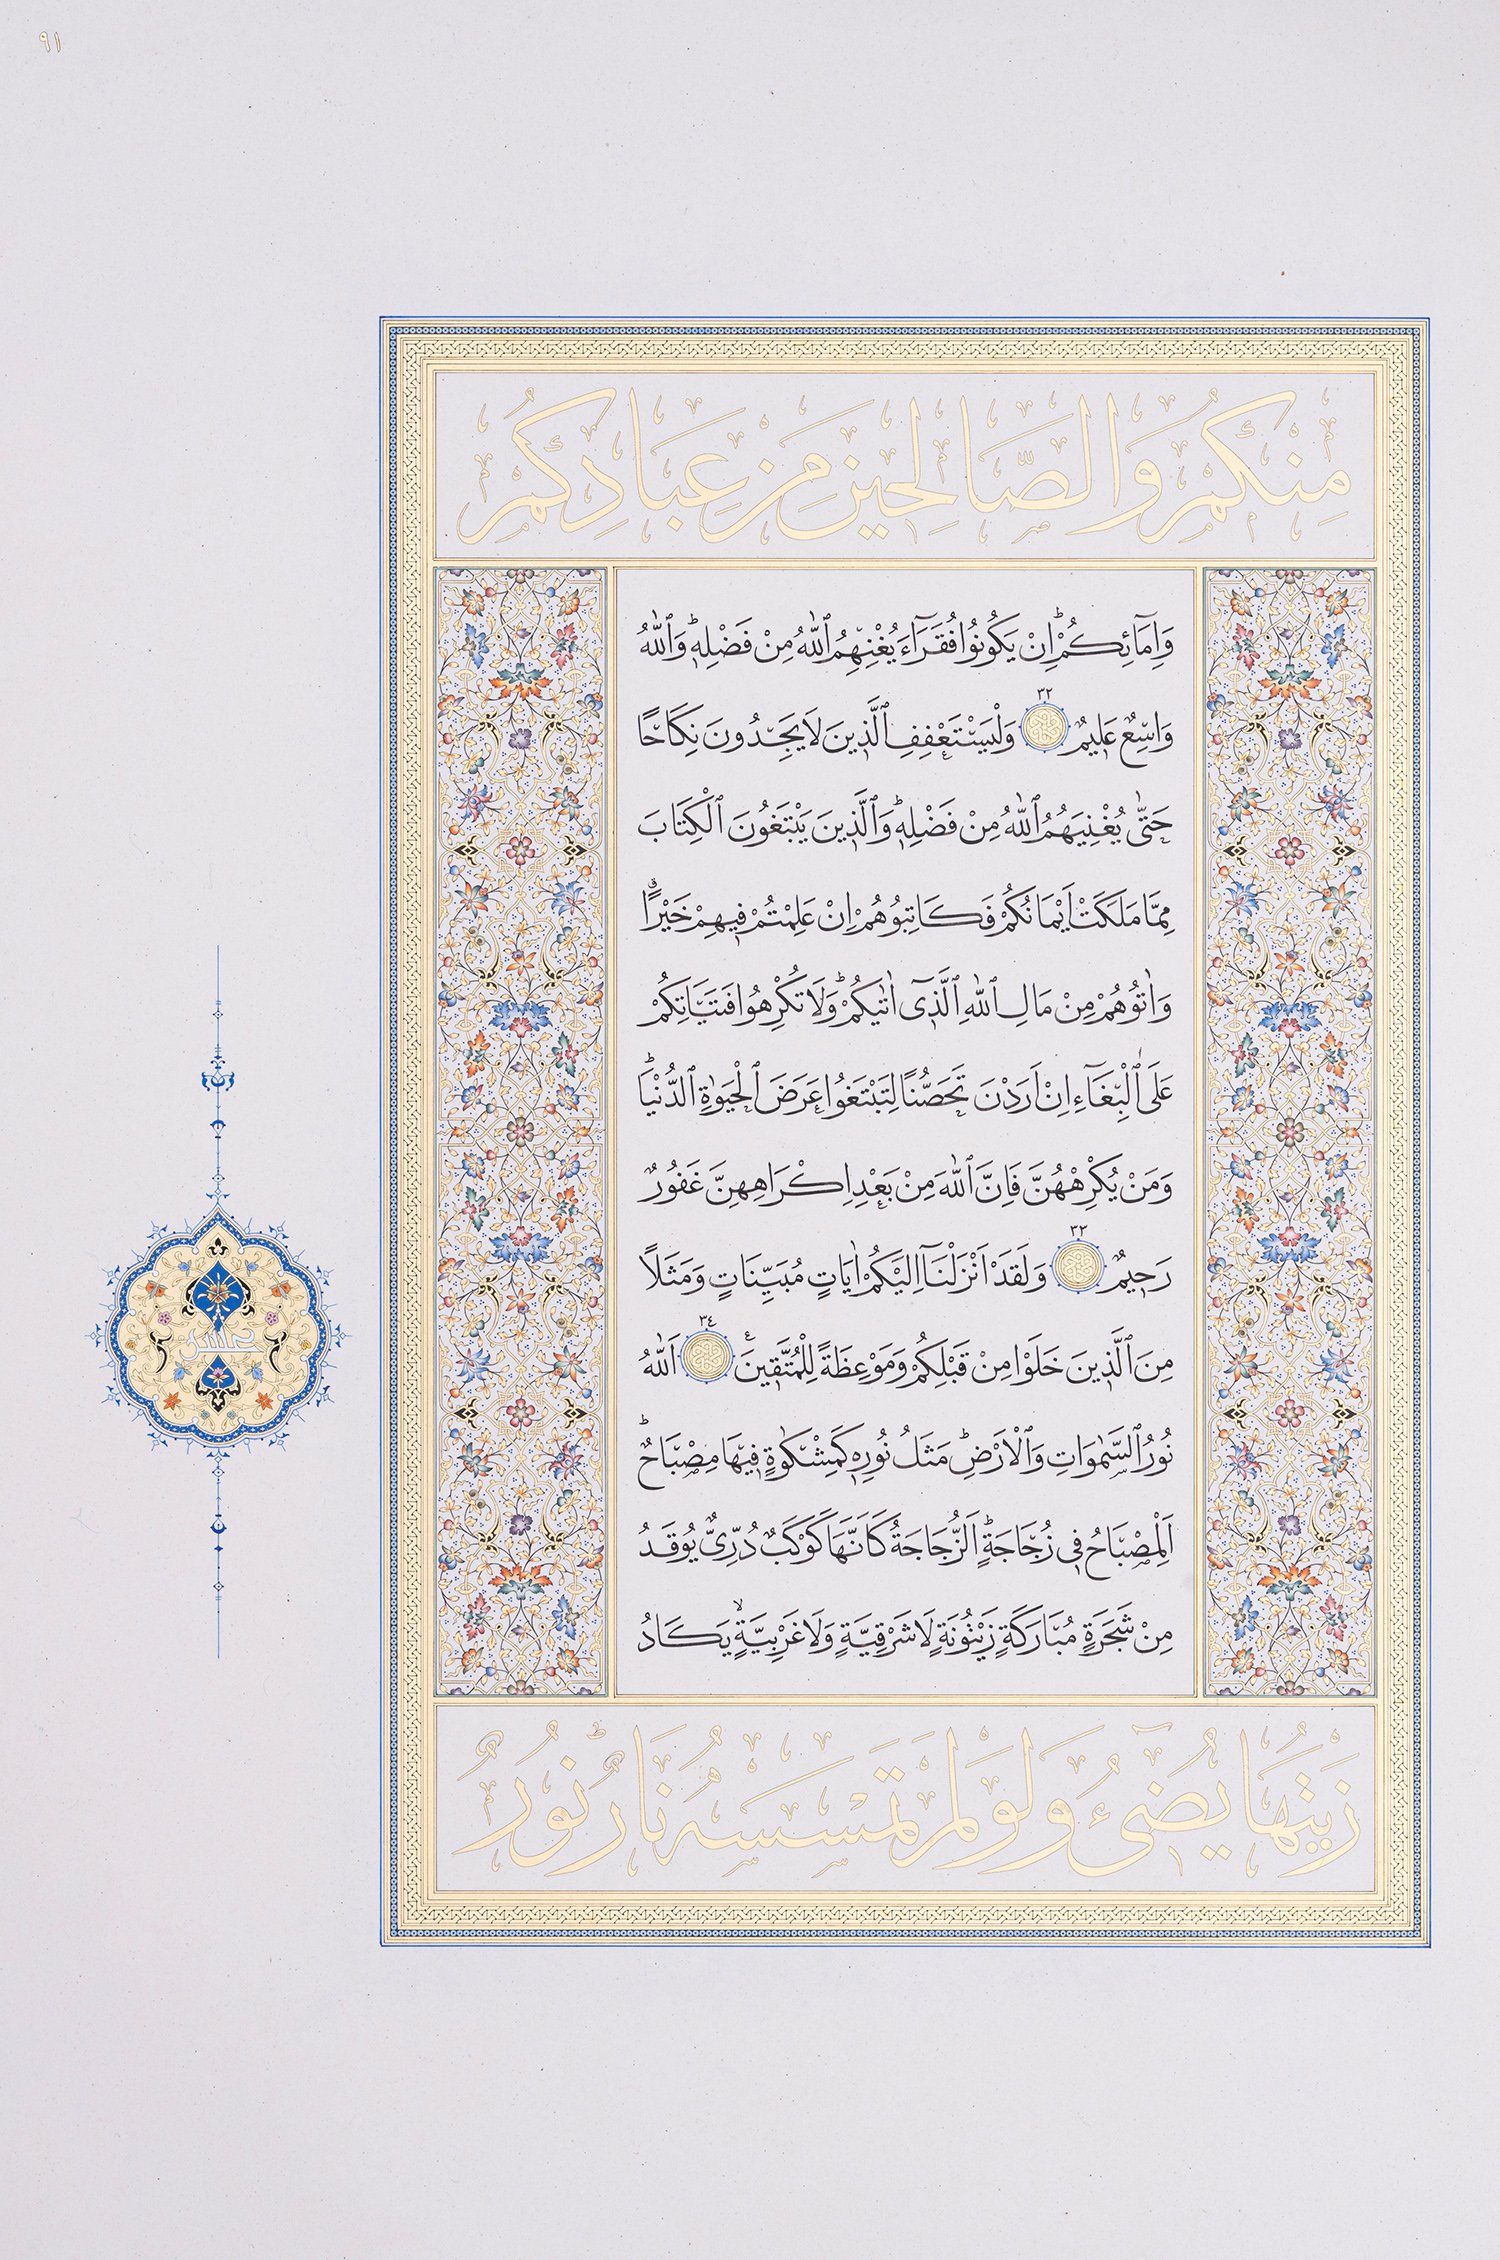 ٩١
مِنْكُمْ وَالصَّالِحِينَ مِنْ عِبَادِكُمْ
وَاِمَٓائِكُمْۜ اِنْ يَكُونُوا فُقَرَٓاءَ يُغْنِهِمُ ٱللّٰهُ مِنْ فَضْلِهٖۜ وَٱللّٰهُ
وَاسِعٌ عَلِيمٌ ٣٢ وَلْيَسْتَعْفِفِ ٱلَّذِينَ لَا يَجِدُونَ نِكَاحًا
حَتّٰى يُغْنِيَهُمُ ٱللّٰهُ مِنْ فَضْلِهٖۜ وَٱلَّذِينَ يَبْتَغُونَ ٱلْكِتَابَ
مِمَّا مَلَكَتْ اَيْمَانُكُمْ فَكَاتِبُوهُمْ اِنْ عَلِمْتُمْ فِيهِمْ خَيْرًا
وَاٰتُوهُمْ مِنْ مَالِ ٱللّٰهِ ٱلَّذِٓى اٰتٰيكُمْۜ وَلَا تُكْرِهُوا فَتَيَاتِكُمْ
عَلَى ٱلْبِغَٓاءِ اِنْ اَرَدْنَ تَحَصُّنًا لِتَبْتَغُوا عَرَضَ ٱلْحَيٰوةِ ٱلدُّنْيَاۜ
وَمَنْ يُكْرِهْهُنَّ فَاِنَّ ٱللّٰهَ مِنْ بَعْدِ اِكْرَاهِهِنَّ غَفُورٌ
رَحِيمٌ ٣٣ وَلَقَدْ اَنْزَلْنَٓا اِلَيْكُمْ اٰيَاتٍ مُبَيِّنَاتٍ وَمَثَلًا
مِنَ ٱلَّذِينَ خَلَوْا مِنْ قَبْلِكُمْ وَمَوْعِظَةً لِلْمُتَّقِينَ ٣٤ اَللّٰهُ
نُورُ ٱلسَّمٰوَاتِ وَٱلْاَرْضِۜ مَثَلُ نُورِهٖ كَمِشْكٰوةٍ فِيهَا مِصْبَاحٌۜ
اَلْمِصْبَاحُ فِى زُجَاجَةٍۜ اَلزُّجَاجَةُ كَاَنَّهَا كَوْكَبٌ دُرِّىٌّ يُوقَدُ
مِنْ شَجَرَةٍ مُبَارَكَةٍ زَيْتُونَةٍ لَا شَرْقِيَّةٍ وَلَا غَرْبِيَّةٍۙ يَكَادُ
زَيْتُهَا يُضِٓىءُ وَلَوْ لَمْ تَمْسَسْهُ نَارٌۜ نُورٌ